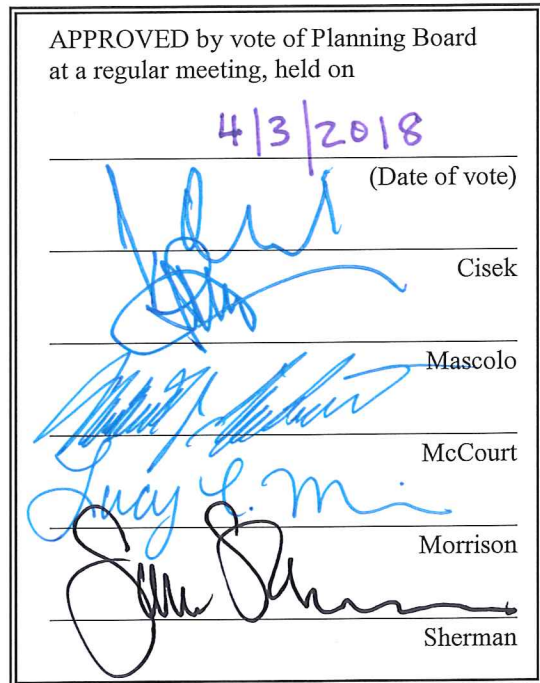 APPROVED by vote of Planning Board
at a regular meeting, held on
4/3/2018
(Date of vote)
Cisek
Mascolo
McCourt
Lucy L. M
Morrison
Sherman